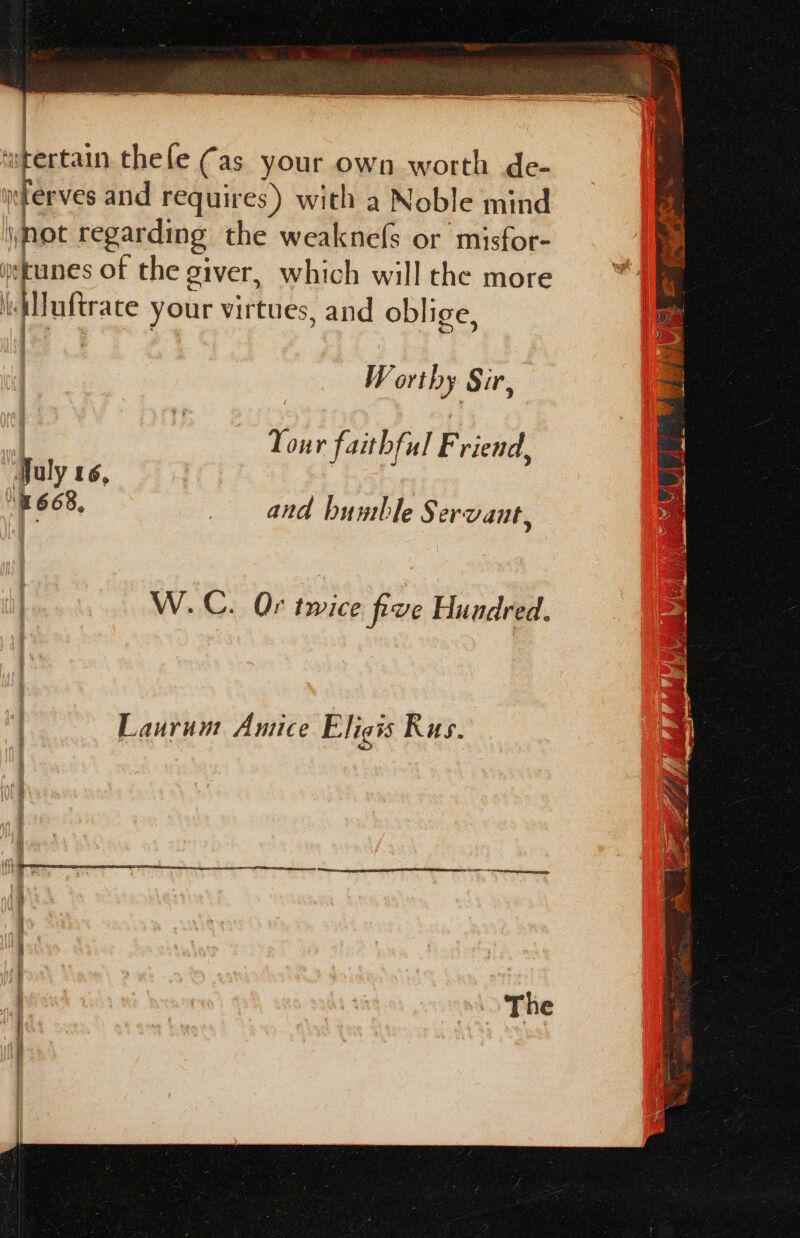 tertain theſe (as your own worth de-
ſerves and requires) with a Noble mind
not regarding the weakneſs or misfor-
tunes of the giver, which will the more
illuſtrate your virtues, and oblige,
Worthy Sir,
Your faithful Friend,
July 16,
1668.
and humble Servant,
W. C. Or twice five Hundred.
Laurum Amice Eligis Rus.
The